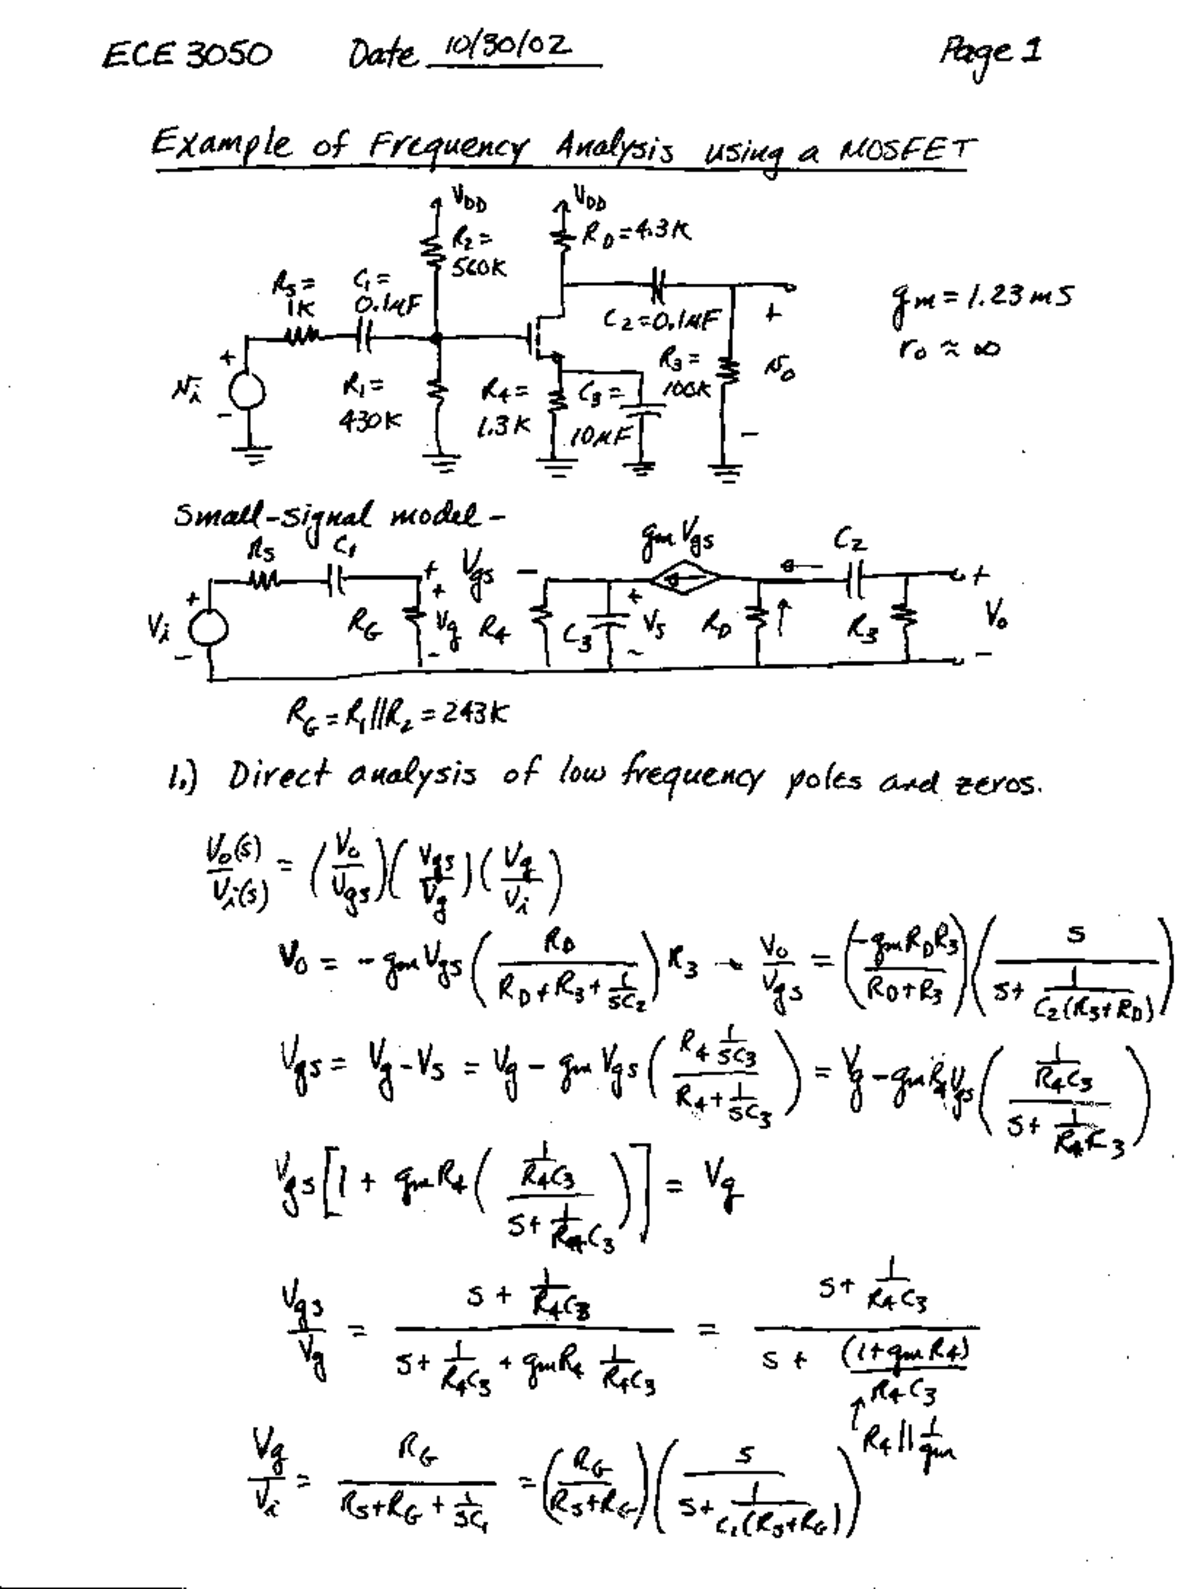 ECE 3050 Date 10/30/02 Page 1
Example of Frequency Analysis using a MOSFET
VDD VDD
R2 = 560K
RD = 4.3K
RS = 1K
C1 = 0.1μF
C2 = 0.1μF
gm = 1.23 mS
ro ≈ ∞
+ vi -
R1 = 430K
R4 = 1.3K
C3 = 10μF
R3 = 100K
+ vo -
Small-signal model -
RS C1 + Vgs - gm Vgs C2
+ Vi - RG + Vg - R4 C3 + Vs - RD R3 + Vo -
RG = R1||R2 = 243K
1.) Direct analysis of low frequency poles and zeros.
Vo(s)/Vi(s) = (Vo/Vgs)(Vgs/Vg)(Vg/Vi)
Vo = -gm Vgs (RD/(RD+R3+1/sC2)) R3 → Vo/Vgs = (-gmRDR3/(RD+R3)) (s/(s+1/(C2(R3+RD))))
Vgs = Vg-Vs = Vg - gm Vgs ((R4 1/sC3)/(R4+1/sC3)) = Vg - gmR4Vgs ((1/R4C3)/(s+1/R4C3))
Vgs [1 + gmR4 ((1/R4C3)/(s+1/R4C3))] = Vg
Vgs/Vg = (s+1/R4C3)/(s+1/R4C3+gmR4 1/R4C3) = (s+1/R4C3)/(s+(1+gmR4)/R4C3)
↑ R4||1/gm
Vg/Vi = RG/(RS+RG+1/sC1) = (RG/(RS+RG)) (s/(s+1/(C1(RS+RG))))